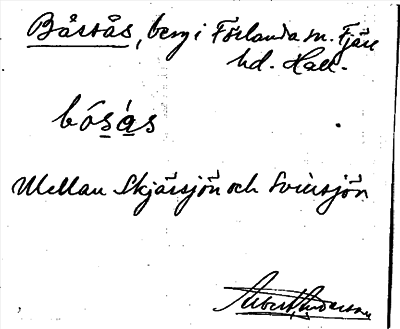 Båsås, berg i Förlanda sn. Fjäre
hd. Hall.
bósás
Mellan Skjärsjön och Svinsjön
Albert Anderson